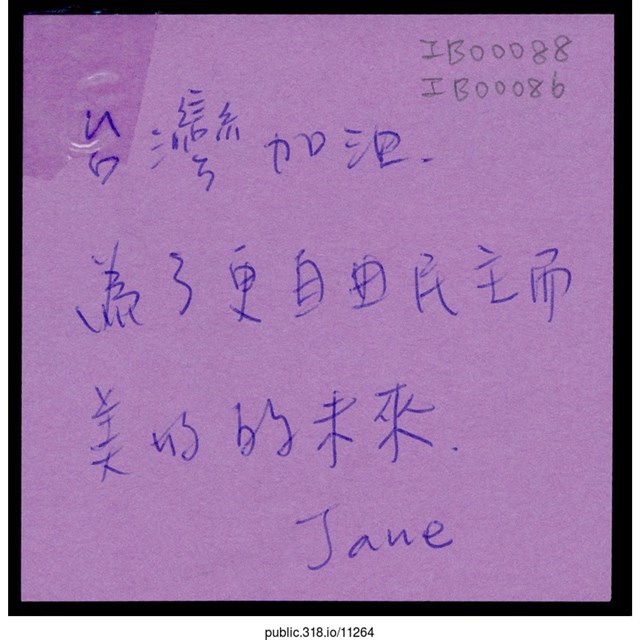 IB00088
IB00086
台灣加油.
為了更自由民主而
美好的未來.
Jane
public.318.io/11264